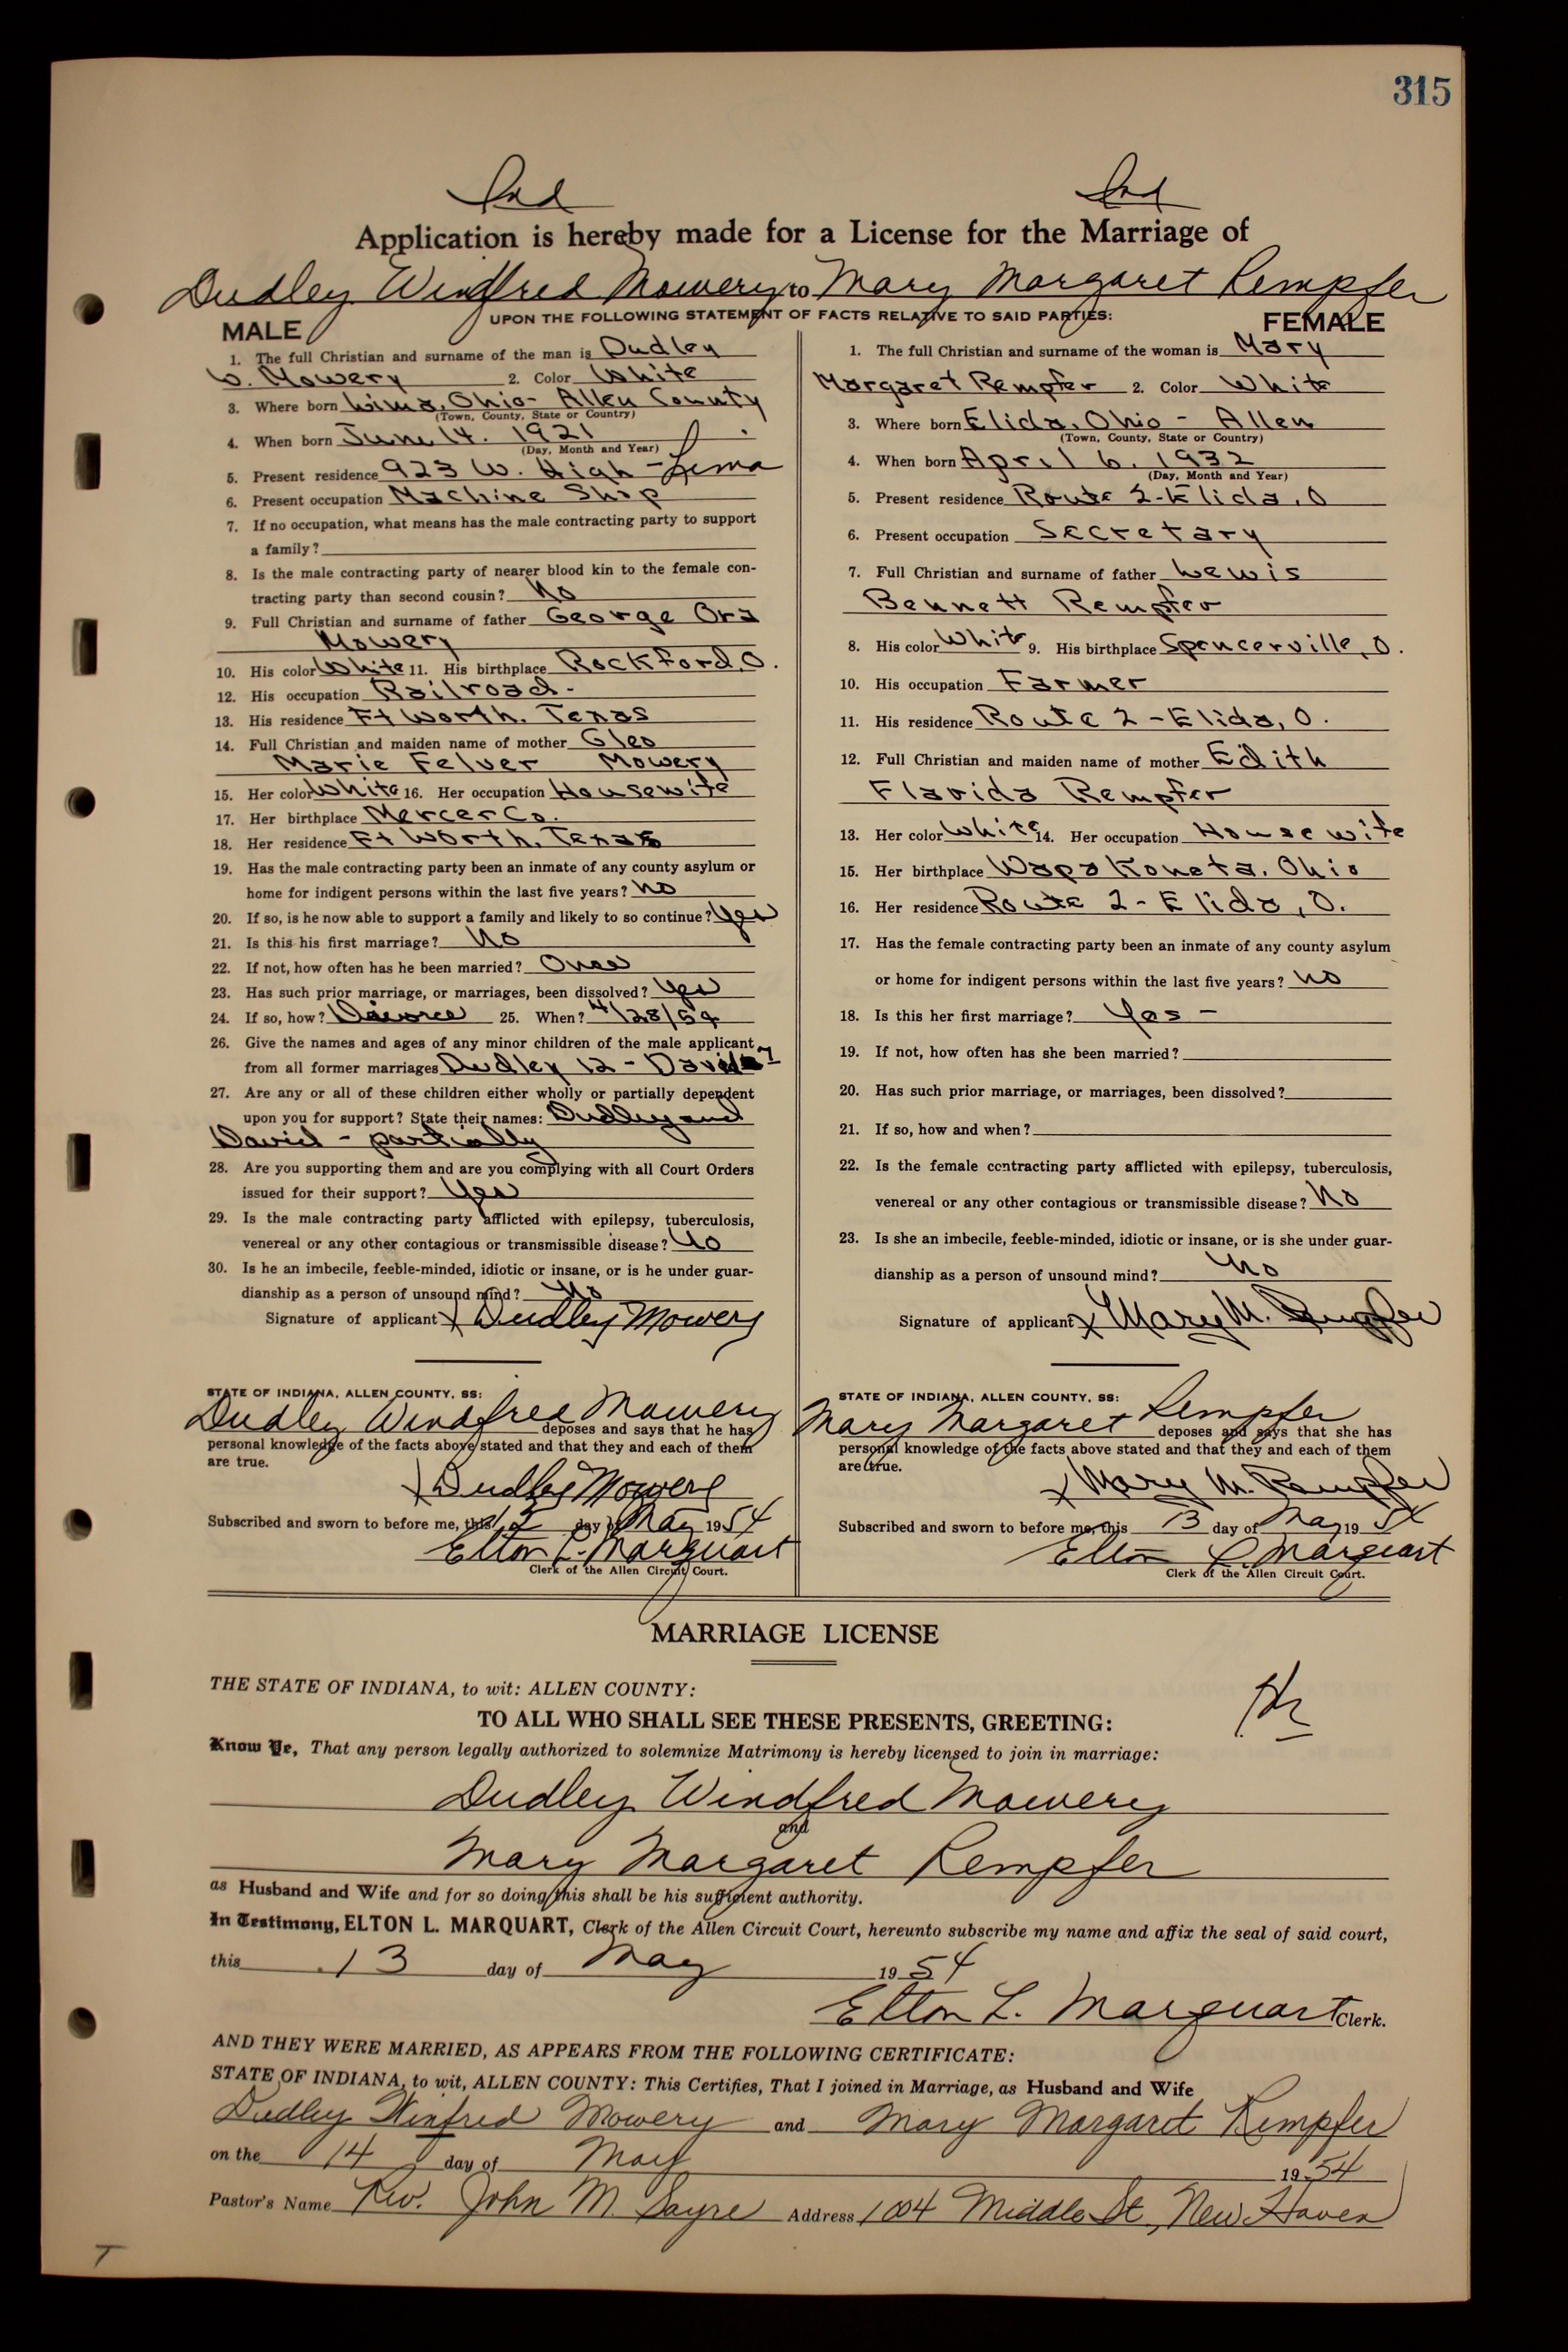 315
Ind Ind
Application is hereby made for a License for the Marriage of
Dudley Windfred Mowery to Mary Margaret Rempfer
UPON THE FOLLOWING STATEMENT OF FACTS RELATIVE TO SAID PARTIES:
MALE
1. The full Christian and surname of the man is Dudley
W. Mowery 2. Color White
3. Where born Lima, Ohio - Allen County
(Town, County, State or Country)
4. When born June 14. 1921
(Day, Month and Year)
5. Present residence 923 W. High - Lima
6. Present occupation Machine Shop
7. If no occupation, what means has the male contracting party to support
a family?
8. Is the male contracting party of nearer blood kin to the female con-
tracting party than second cousin? No
9. Full Christian and surname of father George Ora
Mowery
10. His color White 11. His birthplace Rockford, O.
12. His occupation Railroad -
13. His residence Ft Worth, Texas
14. Full Christian and maiden name of mother Cleo
Marie Felver Mowery
15. Her color White 16. Her occupation Housewife
17. Her birthplace Mercer Co.
18. Her residence Ft Worth, Texas
19. Has the male contracting party been an inmate of any county asylum or
home for indigent persons within the last five years? No
20. If so, is he now able to support a family and likely to so continue? Yes
21. Is this his first marriage? No
22. If not, how often has he been married? Once
23. Has such prior marriage, or marriages, been dissolved? Yes
24. If so, how? Divorce 25. When? 4/28/54
26. Give the names and ages of any minor children of the male applicant
from all former marriages Dudley 12 - David 7
27. Are any or all of these children either wholly or partially dependent
upon you for support? State their names: Dudley and
David - partially
28. Are you supporting them and are you complying with all Court Orders
issued for their support? Yes
29. Is the male contracting party afflicted with epilepsy, tuberculosis,
venereal or any other contagious or transmissible disease? No
30. Is he an imbecile, feeble-minded, idiotic or insane, or is he under guar-
dianship as a person of unsound mind? No
Signature of applicant x Dudley Mowery
STATE OF INDIANA, ALLEN COUNTY, SS:
Dudley Windfred Mowery deposes and says that he has
personal knowledge of the facts above stated and that they and each of them
are true.
x Dudley Mowery
Subscribed and sworn to before me, this day of May 1954
Elton L. Marquart
Clerk of the Allen Circuit Court.
FEMALE
1. The full Christian and surname of the woman is Mary
Margaret Rempfer 2. Color White
3. Where born Elida, Ohio - Allen
(Town, County, State or Country)
4. When born April 6. 1932
(Day, Month and Year)
5. Present residence Route 2 - Elida, O
6. Present occupation Secretary
7. Full Christian and surname of father Lewis
Bennett Rempfer
8. His color White 9. His birthplace Spencerville, O.
10. His occupation Farmer
11. His residence Route 2 - Elida, O.
12. Full Christian and maiden name of mother Edith
Flavida Rempfer
13. Her color White 14. Her occupation Housewife
15. Her birthplace Wapakoneta, Ohio
16. Her residence Route 2 - Elida, O.
17. Has the female contracting party been an inmate of any county asylum
or home for indigent persons within the last five years? No
18. Is this her first marriage? Yes -
19. If not, how often has she been married?
20. Has such prior marriage, or marriages, been dissolved?
21. If so, how and when?
22. Is the female contracting party afflicted with epilepsy, tuberculosis,
venereal or any other contagious or transmissible disease? No
23. Is she an imbecile, feeble-minded, idiotic or insane, or is she under guar-
dianship as a person of unsound mind? No
Signature of applicant x Mary M. Rempfer
STATE OF INDIANA, ALLEN COUNTY, SS:
Mary Margaret Rempfer deposes and says that she has
personal knowledge of the facts above stated and that they and each of them
are true.
x Mary M. Rempfer
Subscribed and sworn to before me, this 13 day of May 1954
Elton L. Marquart
Clerk of the Allen Circuit Court.
MARRIAGE LICENSE
THE STATE OF INDIANA, to wit: ALLEN COUNTY:
TO ALL WHO SHALL SEE THESE PRESENTS, GREETING:
Know Ye, That any person legally authorized to solemnize Matrimony is hereby licensed to join in marriage:
Dudley Windfred Mowery
and
Mary Margaret Rempfer
as Husband and Wife and for so doing this shall be his sufficient authority.
In Testimony, ELTON L. MARQUART, Clerk of the Allen Circuit Court, hereunto subscribe my name and affix the seal of said court,
this 13 day of May 1954
Elton L. Marquart Clerk.
AND THEY WERE MARRIED, AS APPEARS FROM THE FOLLOWING CERTIFICATE:
STATE OF INDIANA, to wit, ALLEN COUNTY: This Certifies, That I joined in Marriage, as Husband and Wife
Dudley Winfred Mowery and Mary Margaret Rempfer
on the 14 day of May 1954
Pastor's Name Rev. John M. Sayre Address 1004 Middle St., New Haven
T